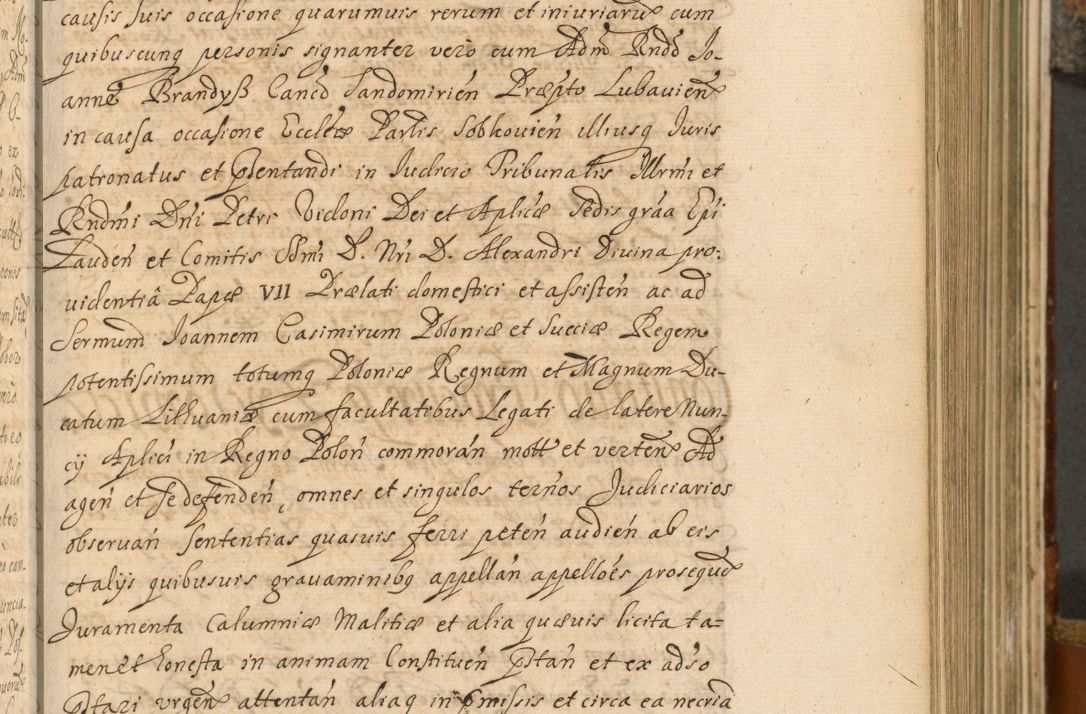 causis suis occasione quarumuis rerum et iniuriarū cum
quibuscunq personis signanter vero cum Adm̄ Rndō Jo-
anne Brandysß Cancō Sandomirien̄ Præpto Lubauien̄
in causa occasione Eccl̄æ Parlis Sobkouien̄ illiusq Juris
patronatus et p̄sentandi in Judicio Tribunalis Illrmi et
Rndmi Dn̄i Petri Vidoni Dei et Aplicæ Sedis grāa Ep̄i
Lauden̄ et Comitis Ss̄mi D. Nri D. Alexandri Diuina pro:
uidentiâ Papæ VII Prælati domestici et assisten̄ ac ad
Sermum Joannem Casimirum Poloniæ et Sueciæ Regem
potentissimum totumq Poloniæ Regnum et Magnum Du-
catum Lithuaniæ cum facultatibus Legati de latere Nun-
cij Aplici in Regno Polon̄ commoran̄ mott et verten̄ Ad
agen̄ et se defenden̄, omnes et singulos tern̄os Judiciarios
obseruan̄ Sententias quasuis ferri peten̄ audien̄ ab eis
et alijs quibusuis grauaminibq appellan̄ appellōes proseque
Juramenta Calumniæ Malitiæ et alia quæuis licita ta=
men et honesta in animam Constituen̄ p̄stan̄ et ex adso
p̄stari vrgen̄ attentan̄ aliaq in p̄missis et circa ea necria